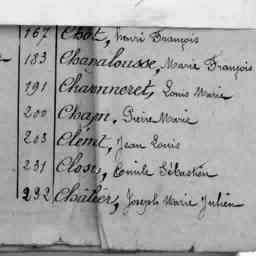 167 Chot, Henri François
183 Chanalousse, Marie François
191 Channeret, Louis Marie
200 Chapn, Pierre Marie
203 Clémt, Jean Louis
231 Closs, Emile Sébastien
232 Châlier, Joseph Marie Julien